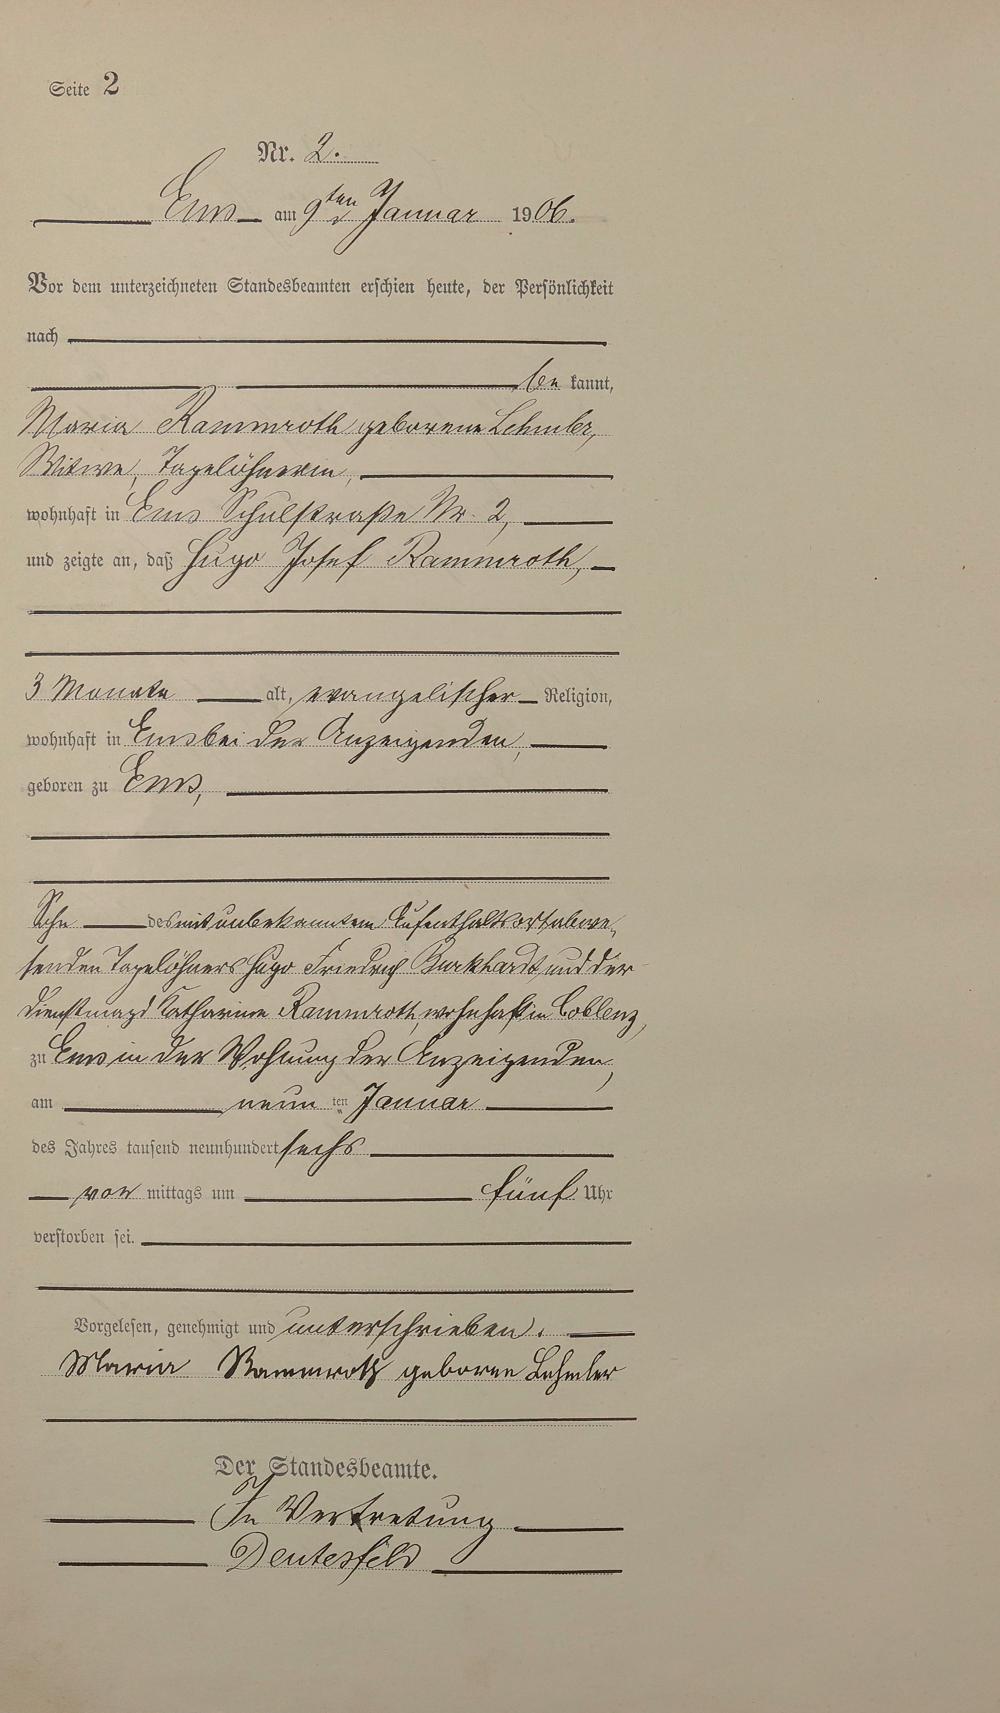 Seite 2
Nr. 2.
Ems am 9ten Januar 1906.
Vor dem unterzeichneten Standesbeamten erschien heute, der Persönlichkeit
nach
be kannt,
Maria Rammroth geborene Lehmler,
Witwe, Tagelöhnerin,
wohnhaft in Ems Schulstraße Nr. 2,
und zeigte an, daß Hugo Josef Rammroth,
3 Monate alt, evangelischer Religion,
wohnhaft in Ems bei der Anzeigenden,
geboren zu Ems,
Sohn des mit unbekanntem Aufenthaltsort abwe-
senden Tagelöhners Hugo Friedrich Burkhardt und der
Dienstmagd Katharine Rammroth, wohnhaft in Coblenz,
zu Ems in der Wohnung der Anzeigenden,
am neun ten Januar
des Jahres tausend neunhundert sechs
vor mittags um fünf Uhr
verstorben sei.
Vorgelesen, genehmigt und unterschrieben.
Maria Rammroth geborne Lehmler
Der Standesbeamte.
In Vertretung
Deutesfeld